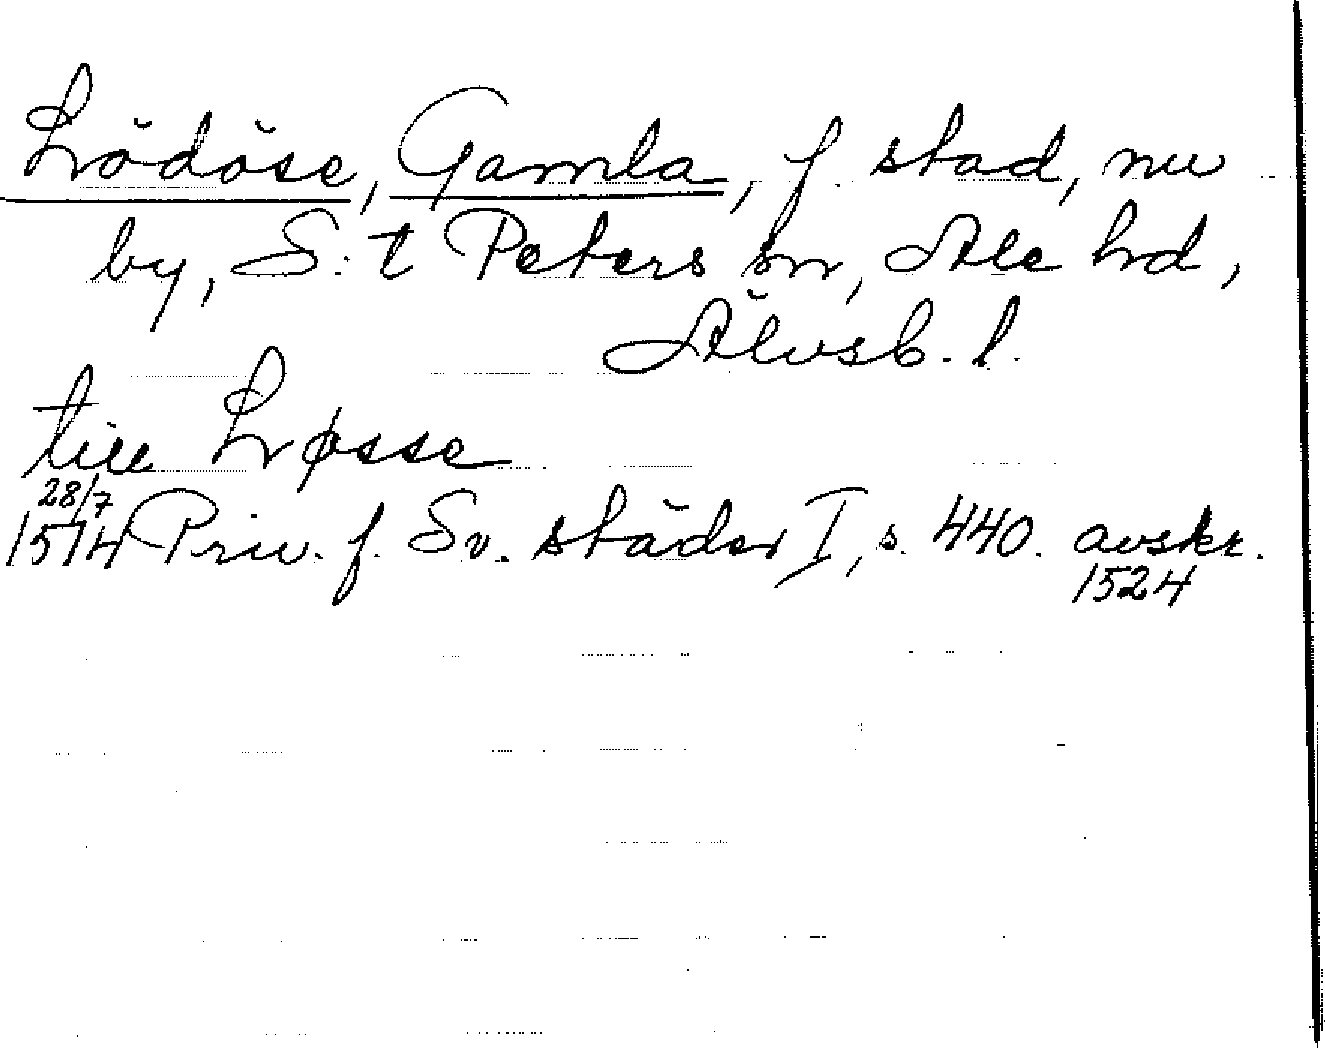 Lödöse, Gamla, f. stad, nu
by, S:t Peters sn, Ale hd,
Älvsb. l.
till Løsse
28/7
1514 Priv. f. Sv. städer I, s. 440. avskr.
1524